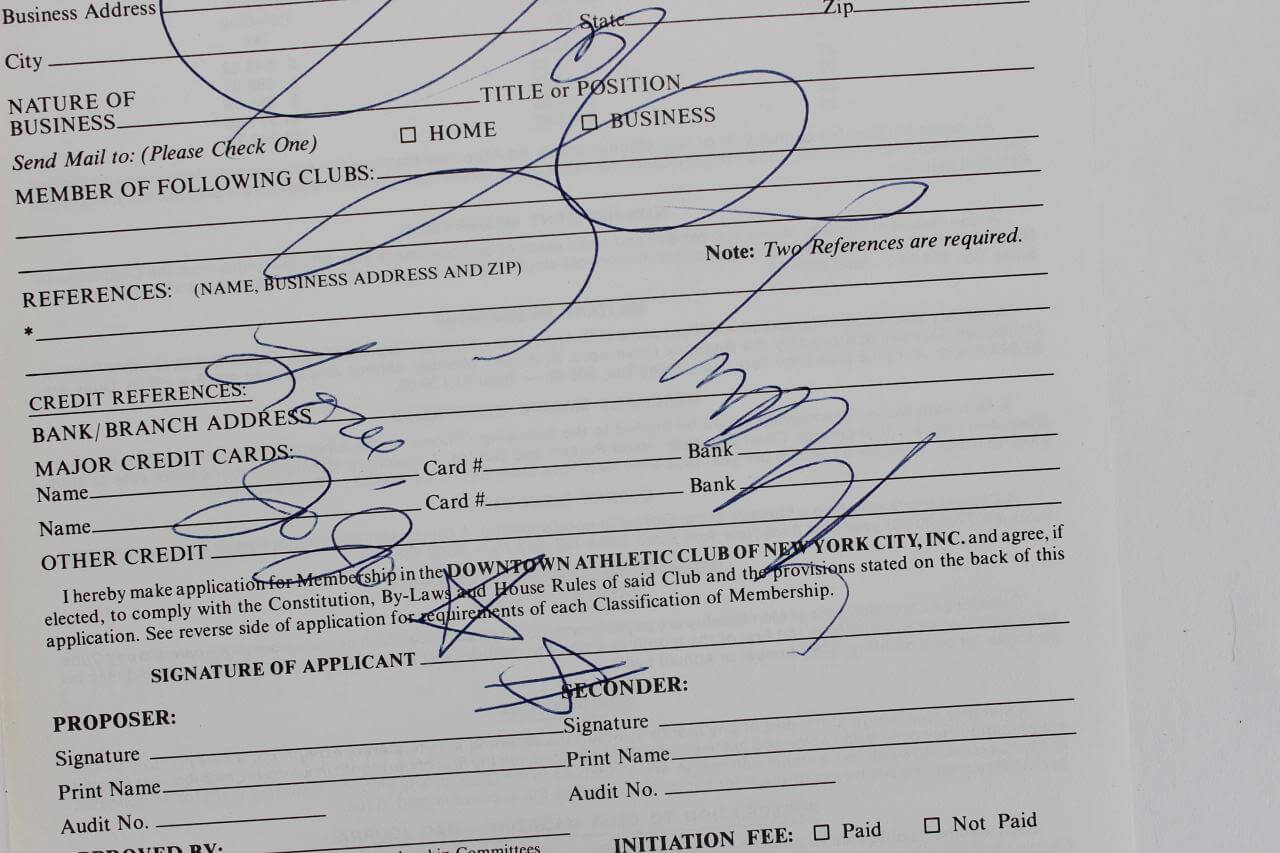 Business Address
State Zip
City
NATURE OF
BUSINESS TITLE or POSITION
Send Mail to: (Please Check One) ☐ HOME ☐ BUSINESS
MEMBER OF FOLLOWING CLUBS:
Note: Two References are required.
REFERENCES: (NAME, BUSINESS ADDRESS AND ZIP)
*
CREDIT REFERENCES:
BANK/BRANCH ADDRESS
MAJOR CREDIT CARDS:
Name Card # Bank
Name Card # Bank
OTHER CREDIT
I hereby make application for Membership in the DOWNTOWN ATHLETIC CLUB OF NEW YORK CITY, INC. and agree, if
elected, to comply with the Constitution, By-Laws and House Rules of said Club and the provisions stated on the back of this
application. See reverse side of application for requirements of each Classification of Membership.
SIGNATURE OF APPLICANT
PROPOSER: SECONDER:
Signature Signature
Print Name Print Name
Audit No. Audit No.
INITIATION FEE: ☐ Paid ☐ Not Paid
APPROVED BY: Committees